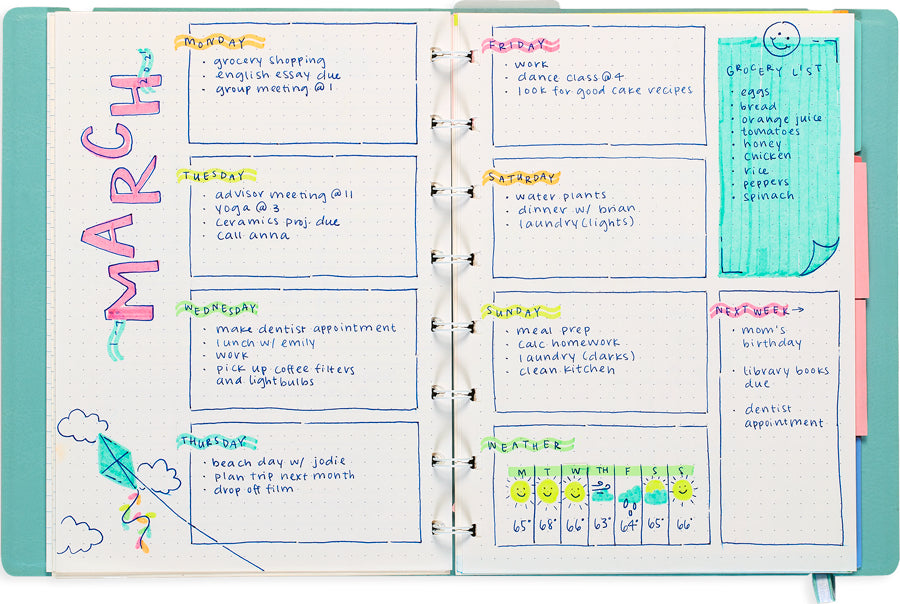 MARCH
MONDAY
• grocery shopping
• english essay due
• group meeting @ 1
TUESDAY
• advisor meeting @ 11
• yoga @ 3
• ceramics proj. due
• call anna
WEDNESDAY
• make dentist appointment
• lunch w/ emily
• work
• pick up coffee filters
and lightbulbs
THURSDAY
• beach day w/ jodie
• plan trip next month
• drop off film
FRIDAY
• work
• dance class @ 4
• look for good cake recipes
SATURDAY
• water plants
• dinner w/ brian
• laundry (lights)
SUNDAY
• meal prep
• calc homework
• laundry (darks)
• clean kitchen
WEATHER
M T W TH F S S
65° 68° 66° 63° 64° 65° 66°
GROCERY LIST
• eggs
• bread
• orange juice
• tomatoes
• honey
• chicken
• rice
• peppers
• spinach
NEXT WEEK →
• mom's
birthday
• library books
due
• dentist
appointment